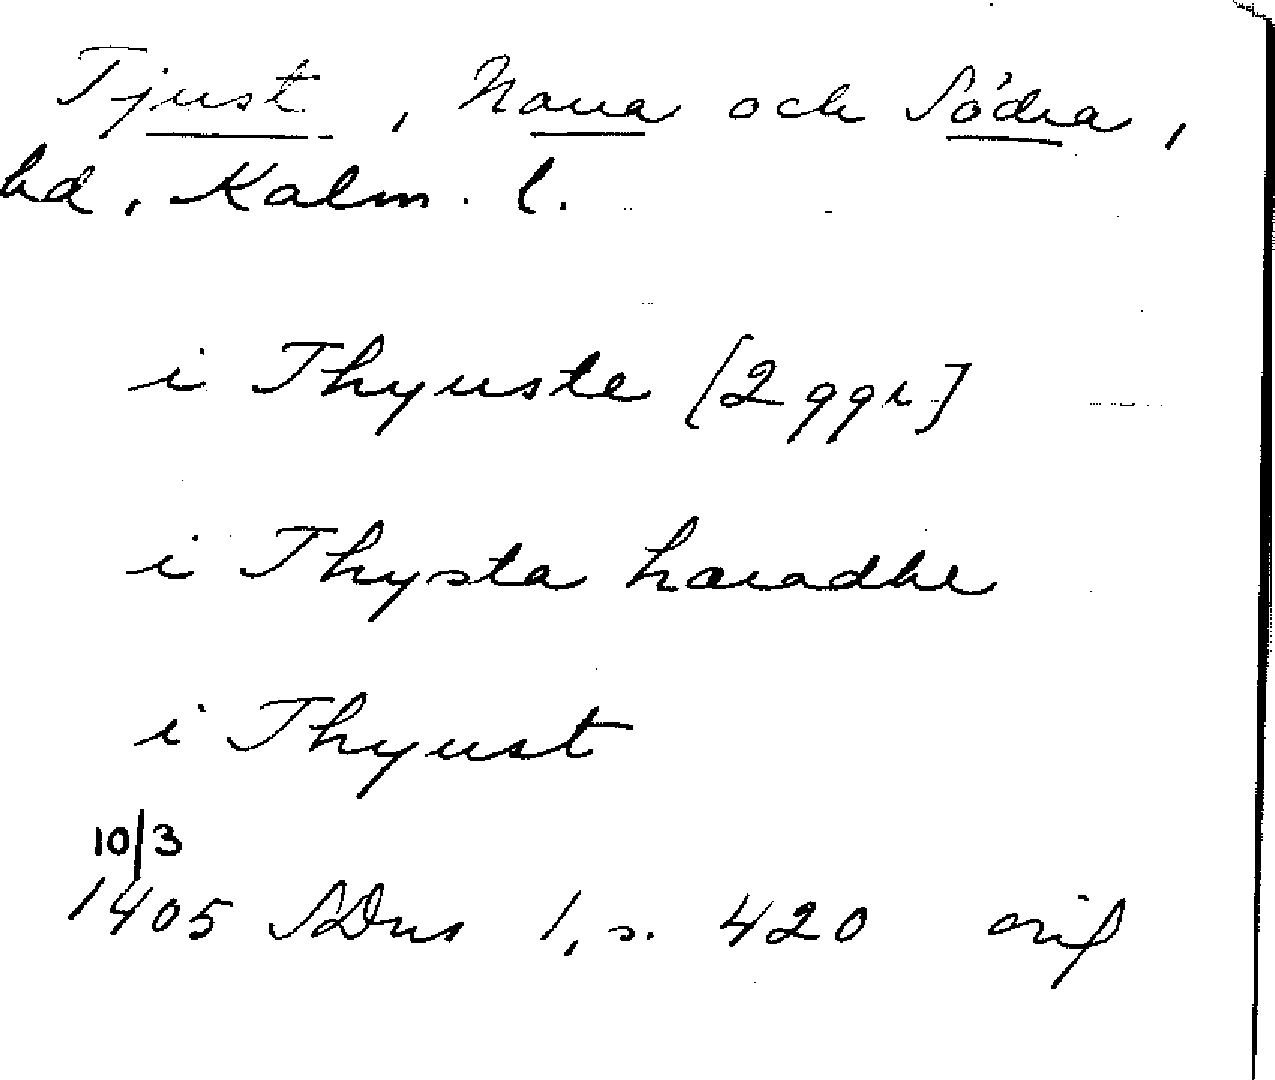 Tjust, Norra och Södra,
hd, Kalm. l.
i Thyuste [2 ggr]
i Thysta haradhe
i Thyust
10/3
1405 SDns 1, s. 420 orig